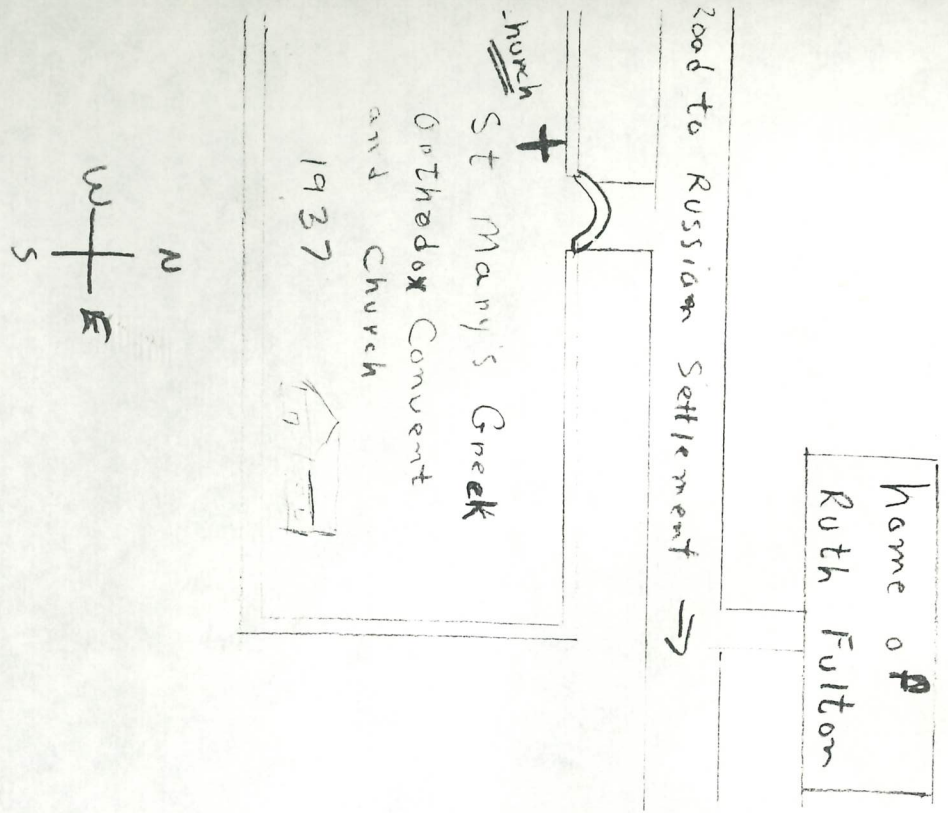 home of
Ruth Fulton
Road to Russian Settlement ⇒
hurch
St Mary's Greek
Orthodox Convent
and Church
1937
N
W E
S